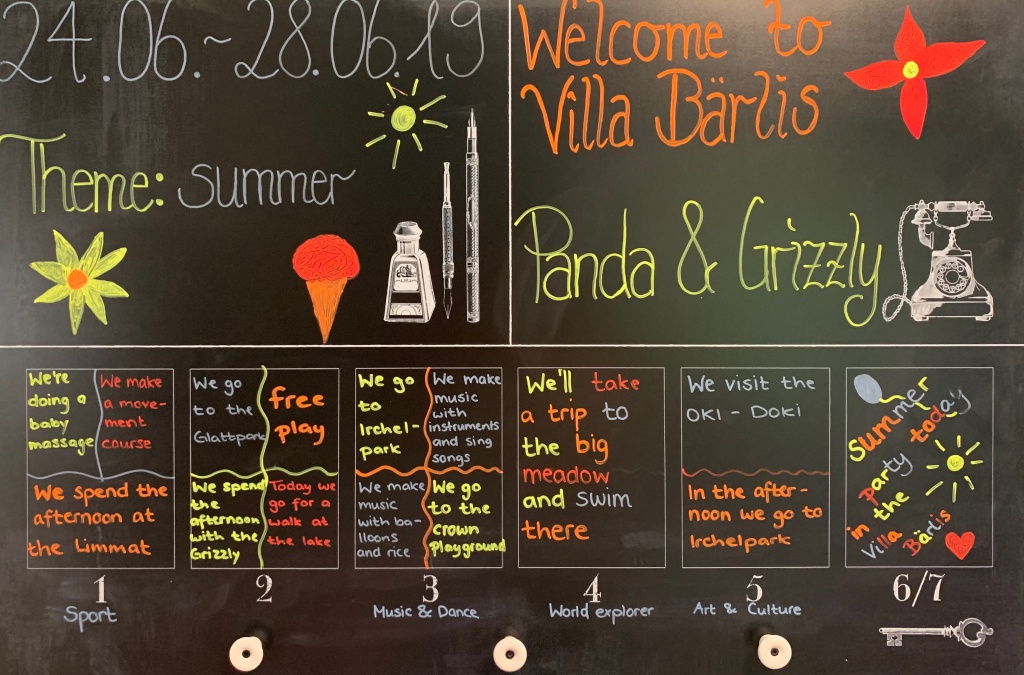 24.06.~28.06.19
Welcome to
Villa Bärlis
Theme: summer
Panda & Grizzly
We're
doing a
baby
massage
We make
a move-
ment
course
We spend the
afternoon at
the Limmat
1
Sport
We go
to the
Glattpark
free
play
We spend
the
afternoon
with the
Grizzly
Today we
go for a
walk at
the lake
2
We go
to
Irchel-
park
We make
music
with
instruments
and sing
songs
We make
music
with ba-
lloons
and rice
We go
to the
crown
playground
3
Music & Dance
We'll take
a trip to
the big
meadow
and swim
there
4
World explorer
We visit the
OKI - DOKI
In the after-
noon we go to
Irchelpark
5
Art & Culture
Summer
party today
in the
Villa Bärlis
6/7